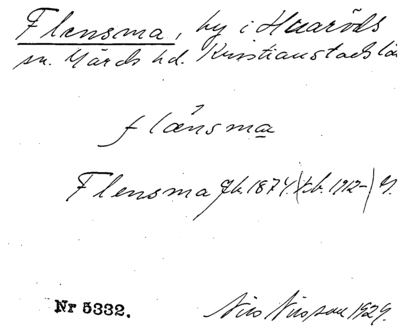 Flensma, by i Huaröds
sn. Gärds hd. Kristianstads lä
flä́nsma
Flensma jb. 1874. 1912- G.
Nr 5332. Nils Nilsson 1929.